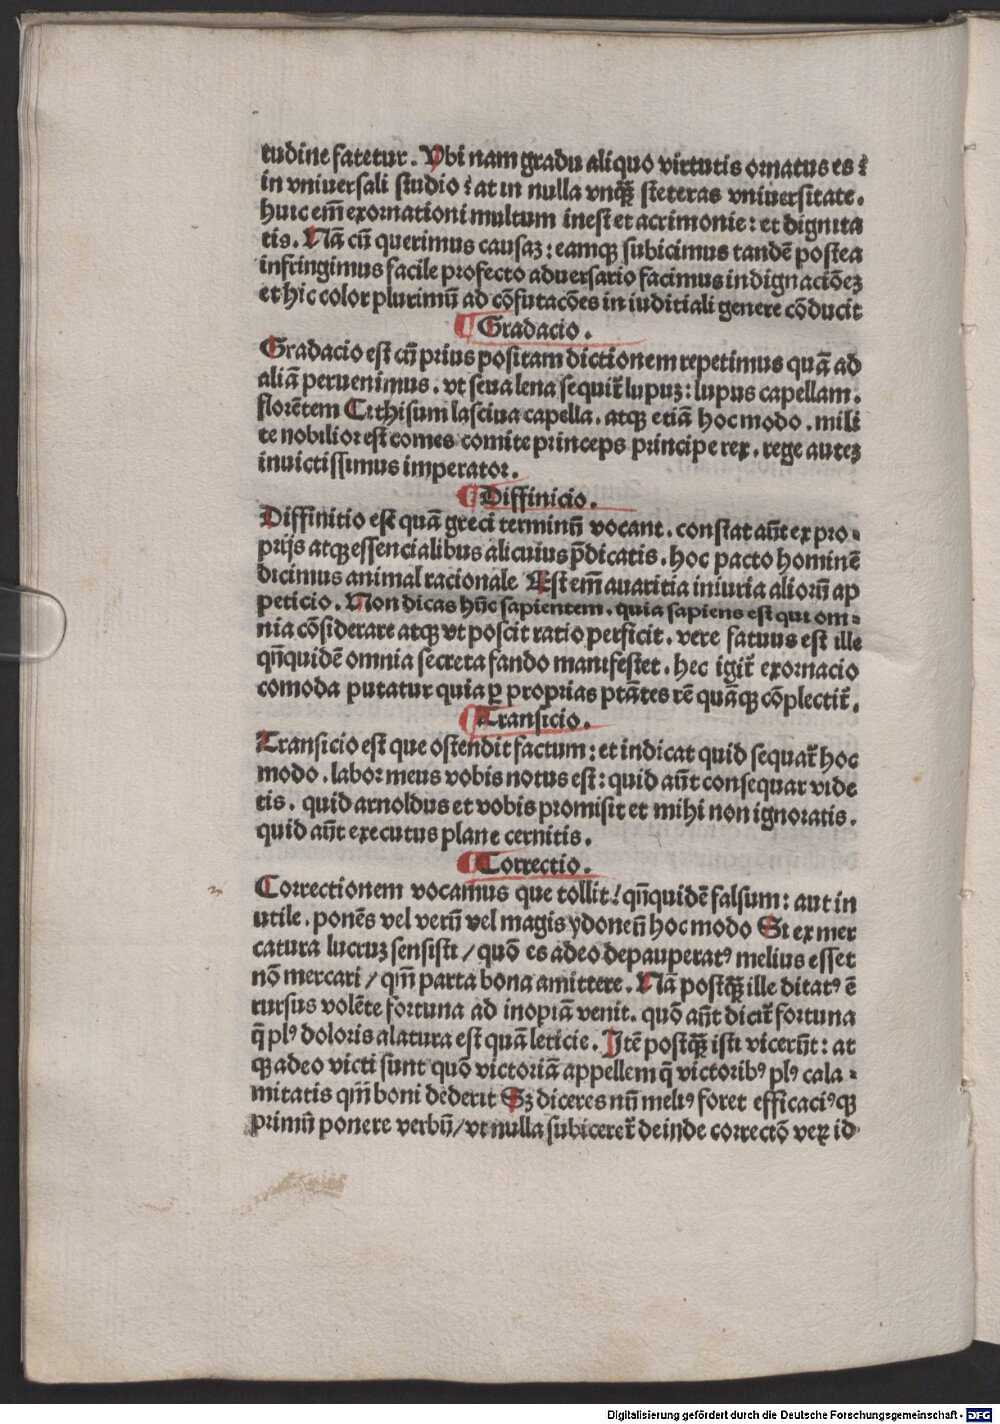 tudine fatetur. Vbi nam gradu aliquo virtutis ornatus es:
in vniuersali studio: at in nulla vnqȝ steteras vniuersitate.
huic em̄ exornationi multum inest et acrimonie: et dignita
tis. Nā cū querimus causaȝ: eamqȝ subicimus tandē postea
infringimus facile profecto aduersario facimus indignaciōeȝ
et hic color plurimū ad cōfutacōes in iuditiali genere cōducit
¶ Gradacio.
Gradacio est cū prius positam dictionem repetimus quā ad
aliā peruenimus. vt seua lena sequit̄ lupuȝ: lupus capellam.
florētem Cithisum lasciua capella. atqȝ etiā hoc modo. mili
te nobilior est comes comite princeps principe rex. rege auteȝ
inuictissimus imperator.
¶ Diffinicio.
Diffinitio est quā greci terminū vocant. constat aūt ex pro-
prijs atqȝ essencialibus alicuius p̄dicatis. hoc pacto hominē
dicimus animal racionale Est em̄ auaritia iniuria aliorū ap
peticio. Non dicas hūc sapientem. quia sapiens est qui om-
nia cōsiderare atqȝ vt poscit ratio perficit. vere fatuus est ille
qn̄quidē omnia secreta fando manifestet. hec igit̄ exornacio
comoda putatur quia ꝑ proprias ptātes rē quāqȝ cōplectit̄.
¶ Transicio.
Transicio est que ostendit factum: et indicat quid sequat̄ hoc
modo. labor meus vobis notus est: quid aūt consequar vide
tis. quid arnoldus et vobis promisit et mihi non ignoratis.
quid aūt executus plane cernitis.
¶ Correctio.
Correctionem vocamus que tollit! qn̄quidē falsum: aut in
utile. ponēs vel verū vel magis ydoneū hoc modo Si ex mer
catura lucruȝ sensisti / quō es adeo depauperatꝰ melius esset
nō mercari / qm̄ parta bona amittere. Nā postqȝ ille ditatꝰ ē
rursus volēte fortuna ad inopiā venit. quō aūt dicit̄ fortuna
q̄ plꝰ doloris alatura est quā leticie. Itē postqȝ isti vicerūt: at
qȝ adeo victi sunt quō victoriā appellem q̄ victoribꝰ plꝰ cala-
mitatis qm̄ boni dederit Sȝ diceres nū meliꝰ foret efficaciꝰqȝ
primū ponere verbū / vt nulla subiceret̄ deinde correctō veꝝ id